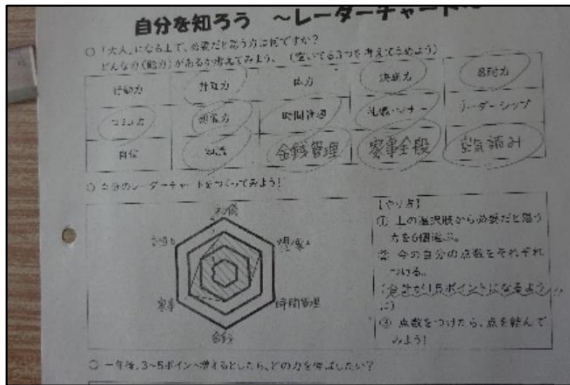 自分を知ろう ～レーダーチャート
○ 「大人」になる上で、必要だと思う力は何ですか？
どんな力(能力)があるか考えてみよう。(空いてる3つを考えてうめよう)
行動力 計画力 体力 決断力 忍耐力
コミュ力 想像力 時間管理 礼儀・マナー リーダーシップ
自信 金銭管理 家事全般 空気読み
○ 自分のレーダーチャートをつくってみよう！
【やり方】
① 上の選択肢から必要だと思う
力を6個選ぶ。
② 今の自分の点数をそれぞれ
つける。
(合計が15ポイントになるよう
に)
③ 点数をつけたら、点を結んで
みよう！
時間管理
家事
金銭
○ 一年後、3～5ポイント増えるとしたら、どの力を伸ばしたい？